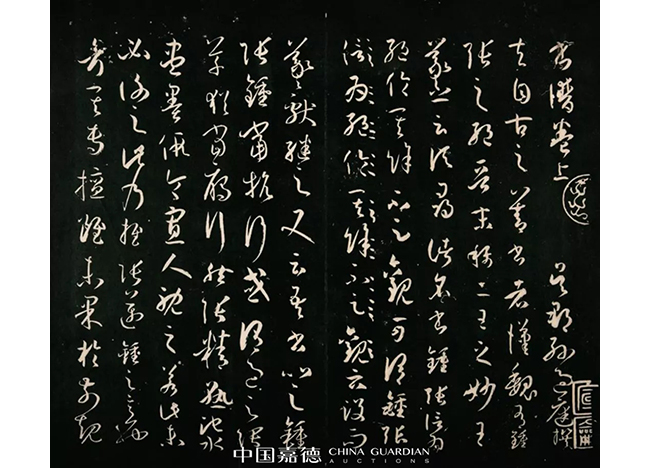 書譜卷上 吳郡孫過庭撰
夫自古之善書者漢魏有鍾
張之絕晉末稱二王之妙王
羲之云頃尋諸名書鍾張信為
絕倫其餘不足觀可謂鍾張
信為絕倫其餘不足觀云沒而
羲獻繼之又云吾書比之鍾
張鍾當抗行或謂過之張
草猶當鴈行然張精熟池水
盡墨假令寡人耽之若此未
必謝之此乃推張邁鍾之意也
考其專擅雖未果於前規
中国嘉德 CHINA GUARDIAN
AUCTIONS